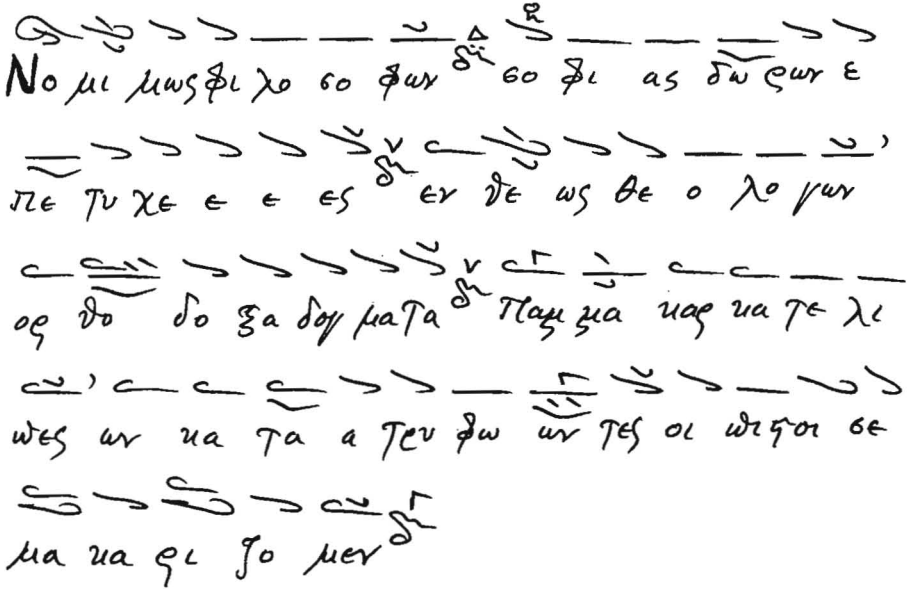 Νο μι μως φι λο σο φων σο φι ας δω ρων ε
πε τυ χε ε ε ες εν θε ως θε ο λο γων
ορ θο δο ξα δογ μα τα Παμ μα καρ κα τε λι
πες ων κα τα α τρυ φω ων τες οι πι στοι σε
μα κα ρι ζο μεν